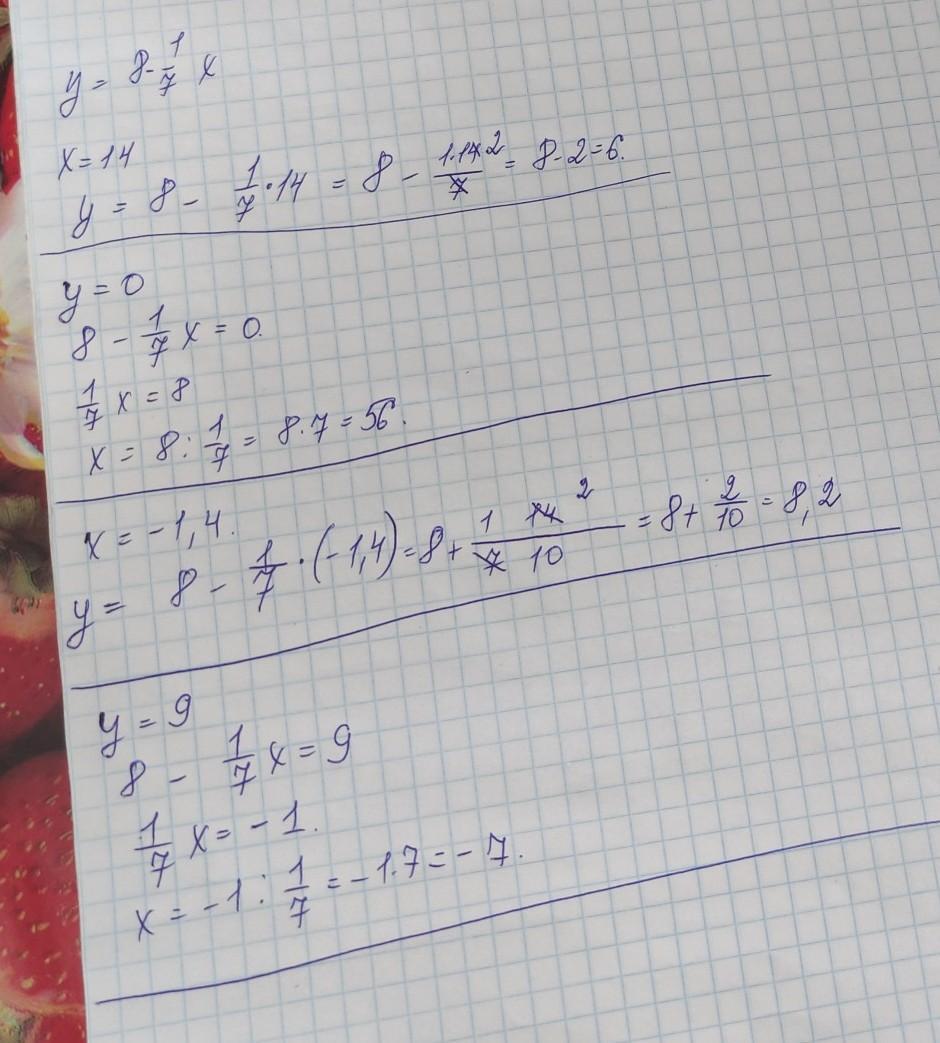 y = 8 - 1/7 x
x = 14
y = 8 - 1/7 · 14 = 8 - 1·14 2/7 = 8 - 2 = 6.
y = 0
8 - 1/7 x = 0.
1/7 x = 8
x = 8 : 1/7 = 8 · 7 = 56.
x = -1,4.
y = 8 - 1/7 · (-1,4) = 8 + 1 14 2/7 10 = 8 + 2/10 = 8,2
y = 9
8 - 1/7 x = 9
1/7 x = -1.
x = -1 : 1/7 = -1·7 = -7.